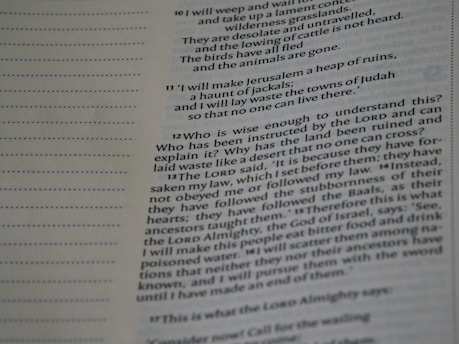 10 I will weep and wail for
and take up a lament conce
wilderness grasslands.
They are desolate and untravelled,
and the lowing of cattle is not heard.
The birds have all fled
and the animals are gone.
11 'I will make Jerusalem a heap of ruins,
a haunt of jackals;
and I will lay waste the towns of Judah
so that no one can live there.'
12 Who is wise enough to understand this?
Who has been instructed by the LORD and can
explain it? Why has the land been ruined and
laid waste like a desert that no one can cross?
13 The LORD said, 'It is because they have for-
saken my law, which I set before them; they have
not obeyed me or followed my law. 14 Instead,
they have followed the stubbornness of their
hearts; they have followed the Baals, as their
ancestors taught them.' 15 Therefore this is what
the LORD Almighty, the God of Israel, says: 'See,
I will make this people eat bitter food and drink
poisoned water. 16 I will scatter them among na-
tions that neither they nor their ancestors have
known, and I will pursue them with the sword
until I have made an end of them.'
17 This is what the LORD Almighty says:
'Consider now! Call for the wailing
to come;
of them.